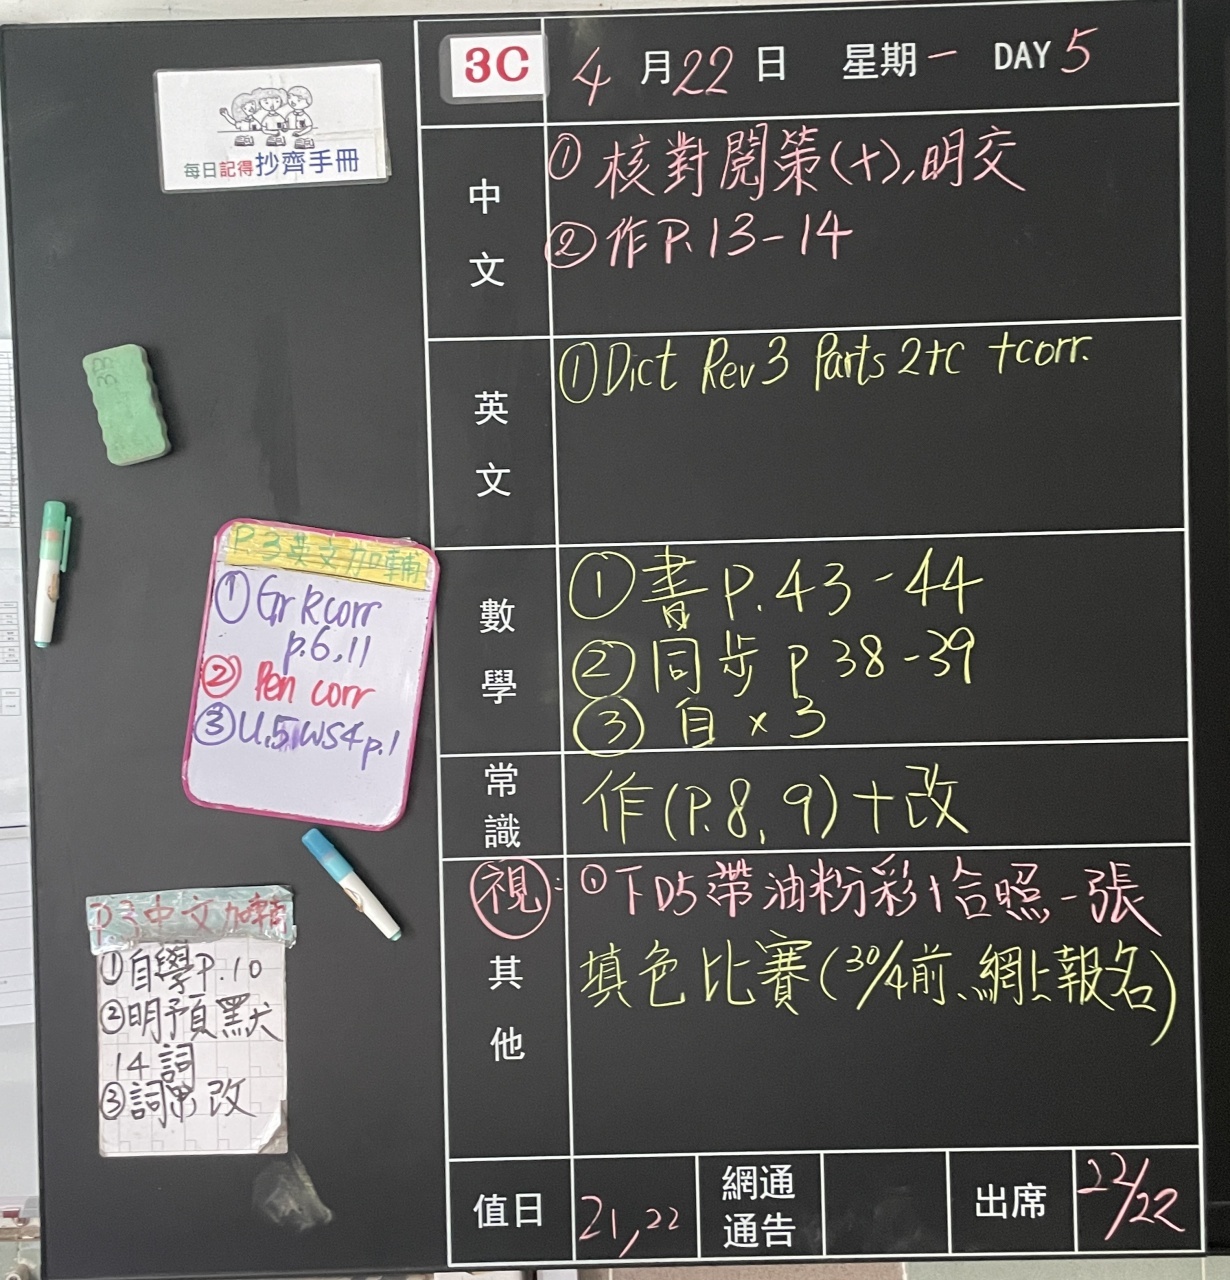 3C
4月22日 星期一 DAY 5
每日記得抄齊手冊
中文
①核對閱策(十),明交
②作P.13-14
英文
①Dict Rev 3 Parts 2+C +corr.
數學
①書P.43-44
②同步P 38-39
③自×3
常識
作(P.8,9)+改
視:①下D5帶油粉彩+合照一張
其他
填色比賽(30/4前、網上報名)
值日
21,22
網通
通告
出席
22/22
P.3英文加輔
①Gr R corr
p.6,11
②Pen corr
③U.5 WS4 p.1
P3中文加輔
①自學P.10
②明預默
14詞
③詞 改